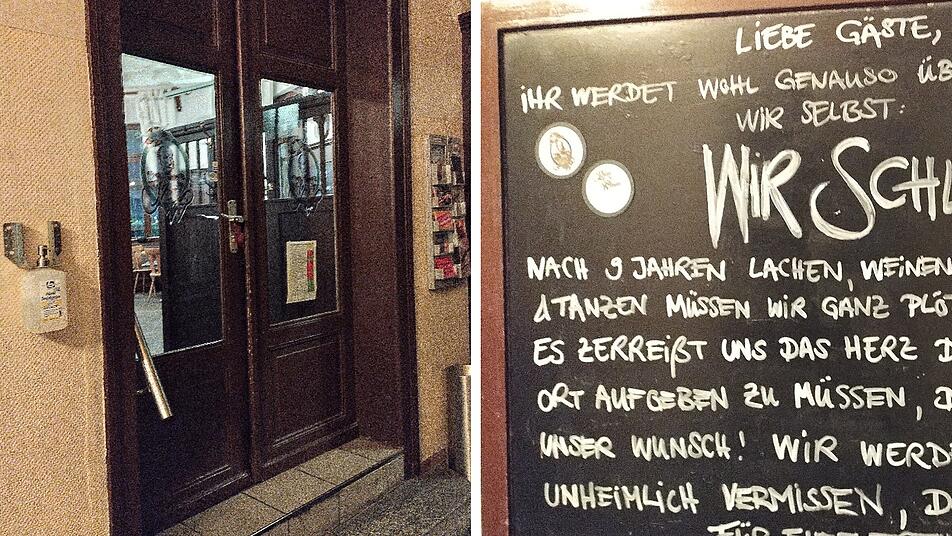 LIEBE GÄSTE,
IHR WERDET WOHL GENAUSO ÜB
WIR SELBST:
WIR SCHL
NACH 9 JAHREN LACHEN, WEINEN
&TANZEN MÜSSEN WIR GANZ PLÖ
ES ZERREIßT UNS DAS HERZ D
ORT AUFGEBEN ZU MÜSSEN, D
UNSER WUNSCH! WIR WERD
UNHEIMLICH VERMISSEN, D